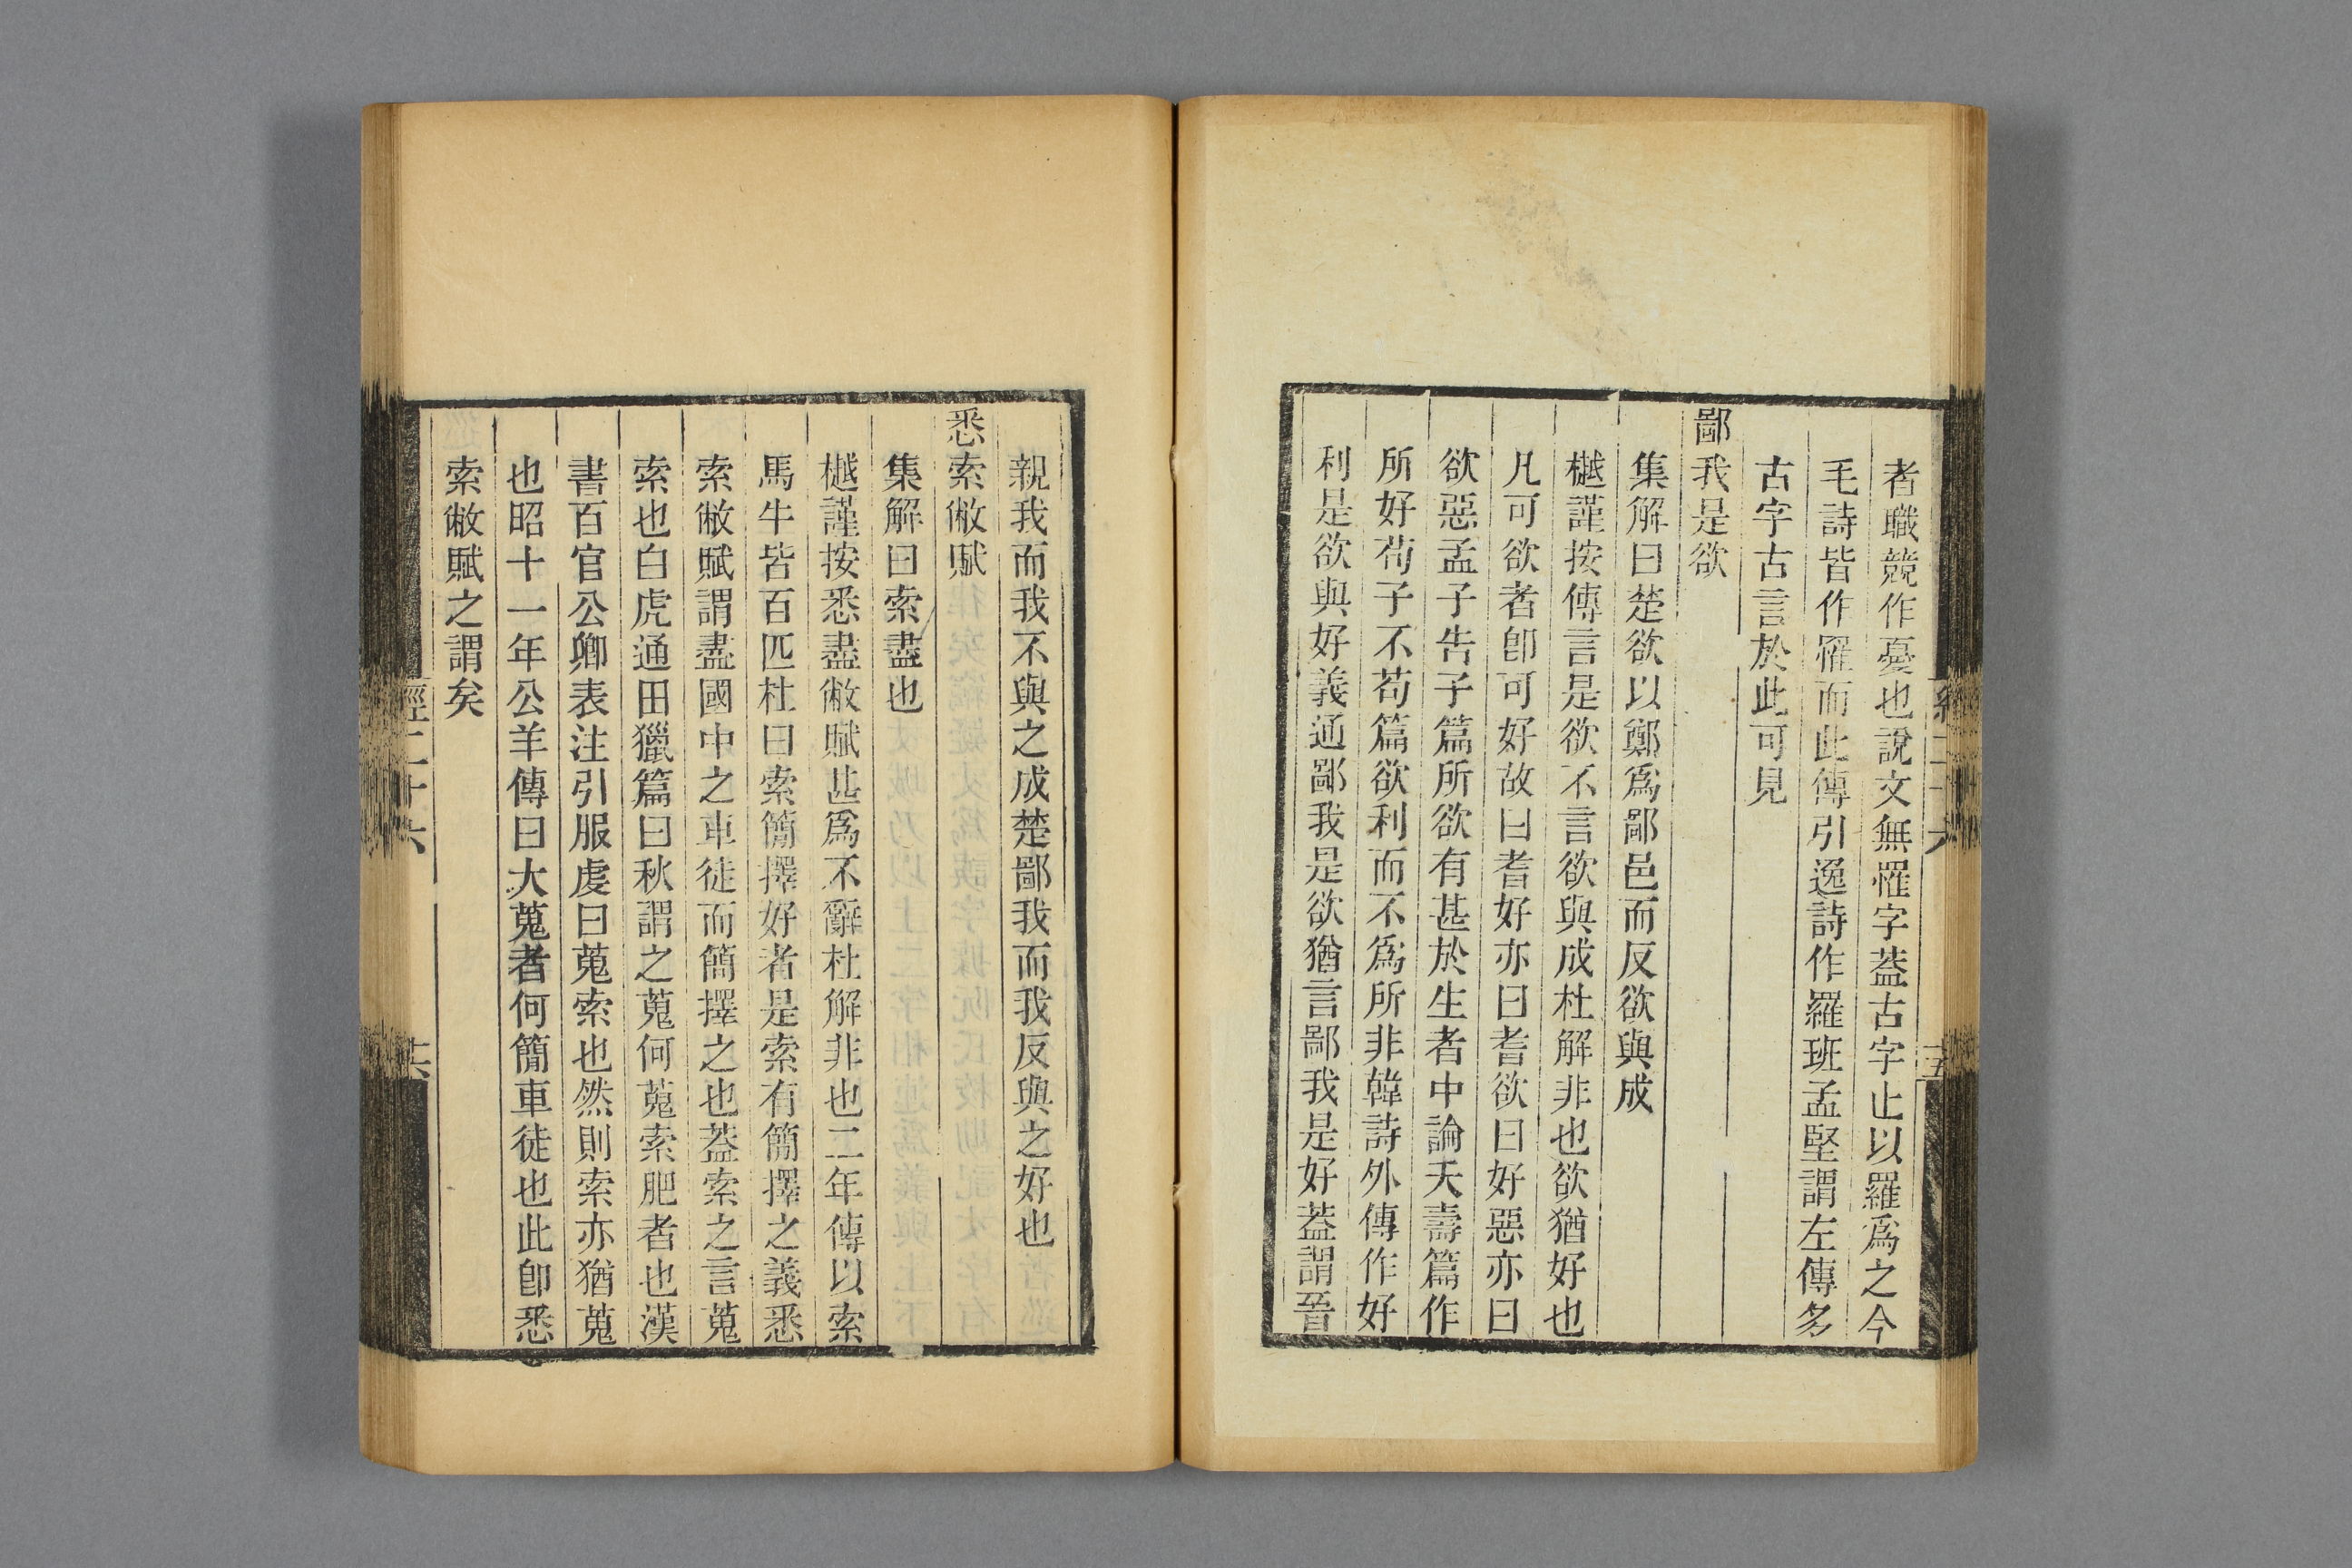 者職競作憂也說文無罹字葢古字止以羅爲之今
毛詩皆作罹而此傳引逸詩作羅班孟堅謂左傳多
古字古言於此可見
鄙我是欲
集解曰楚欲以鄭爲鄙邑而反欲與成
樾謹按傳言是欲不言欲與成杜解非也欲猶好也
凡可欲者卽可好故曰耆好亦曰耆欲曰好惡亦曰
欲惡孟子告子篇所欲有甚於生者中論夭壽篇作
所好荀子不苟篇欲利而不爲所非韓詩外傳作好
利是欲與好義通鄙我是欲猶言鄙我是好葢謂晉
親我而我不與之成楚鄙我而我反與之好也
悉索敝賦
集解曰索盡也
樾謹按悉盡敝賦甚爲不辭杜解非也二年傳以索
馬牛皆百匹杜曰索簡擇好者是索有簡擇之義悉
索敝賦謂盡國中之車徒而簡擇之也葢索之言蒐
索也白虎通田獵篇曰秋謂之蒐何蒐索肥者也漢
書百官公卿表注引服虔曰蒐索也然則索亦猶蒐
也昭十一年公羊傳曰大蒐者何簡車徒也此卽悉
索敝賦之謂矣
經二十六